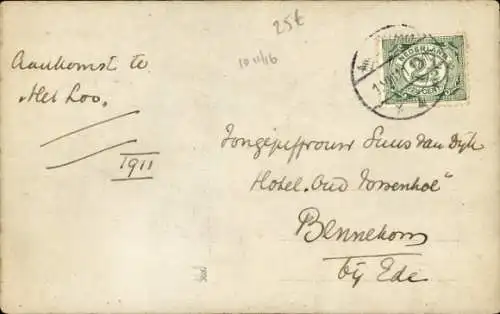 25€
10 11/16
Aankomst te
Het Loo.
1911
NEDERLAND
2½
CENT
Jongejuffrouw Suus van Dijk
Hotel "Oud Vossenhol"
Bennekom
bij Ede